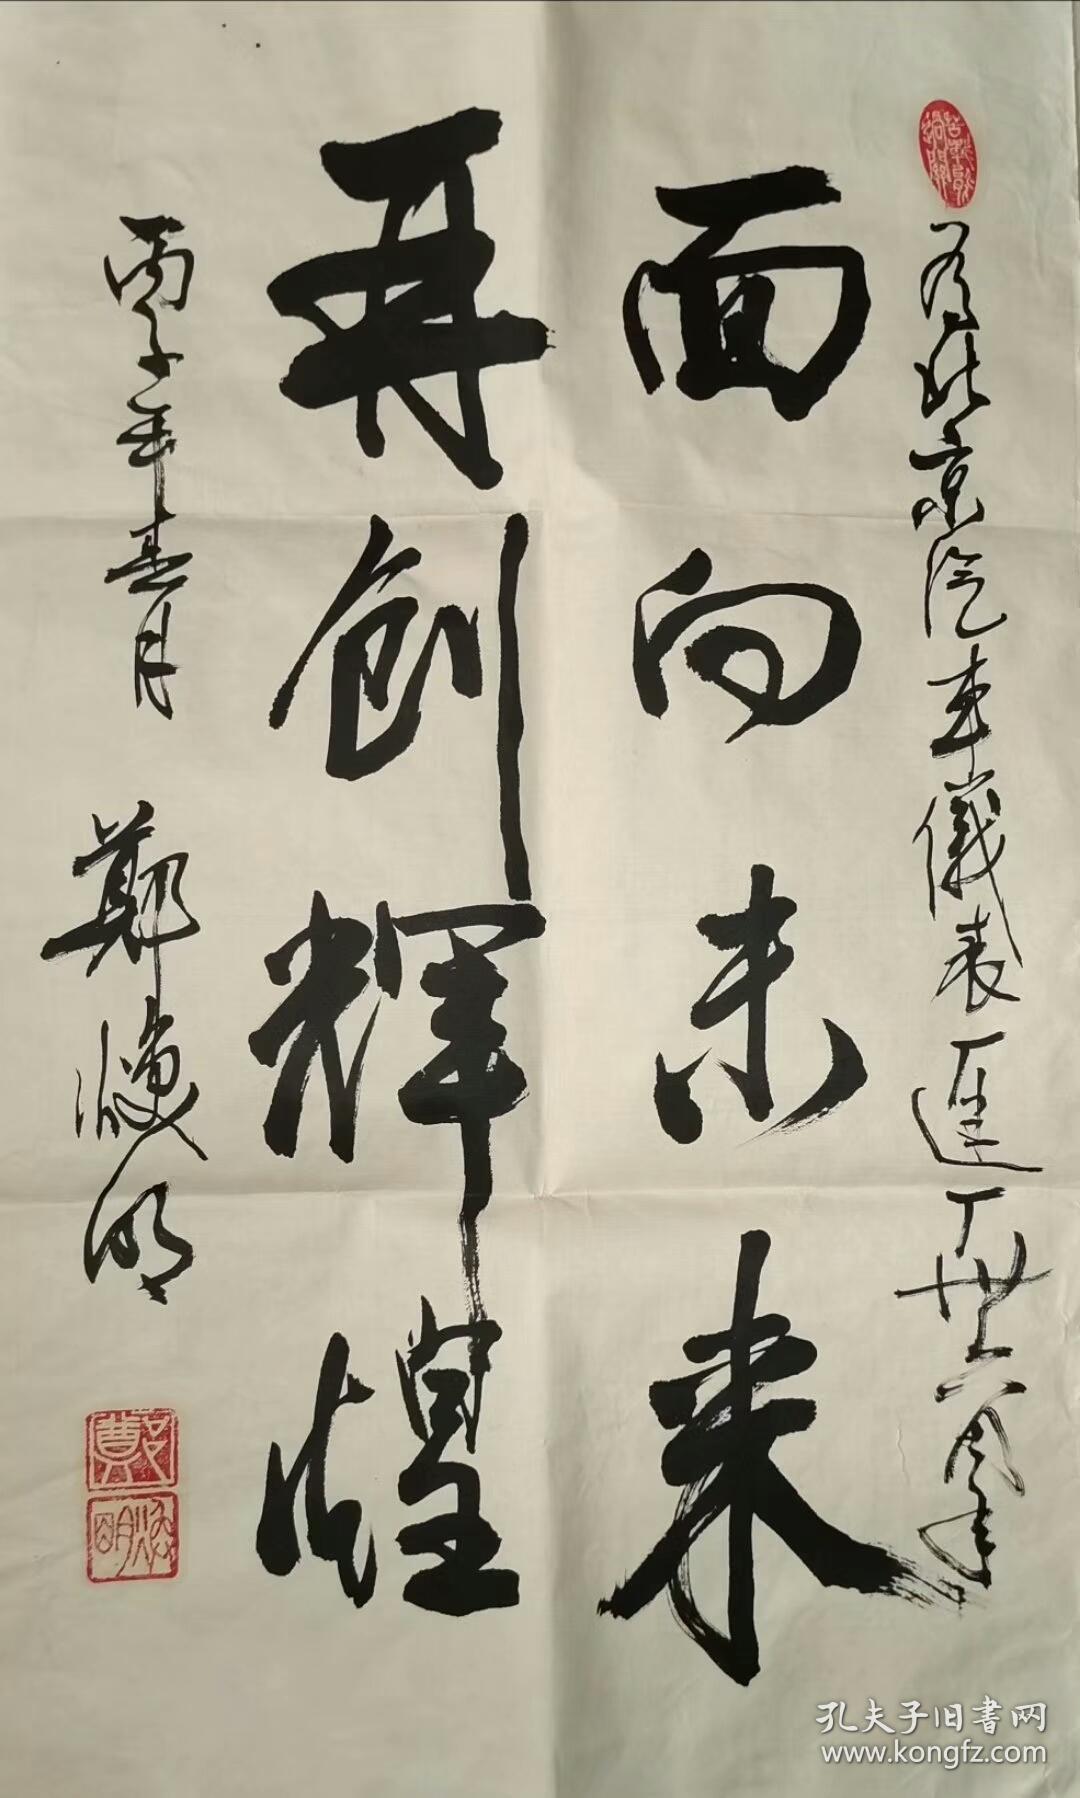 为北京汽车儀表厂建厂卅六周年
面向未来
再创辉煌
丙子年春月
鄭焕明
鄭
焕明
孔夫子旧书网
www.kongfz.com